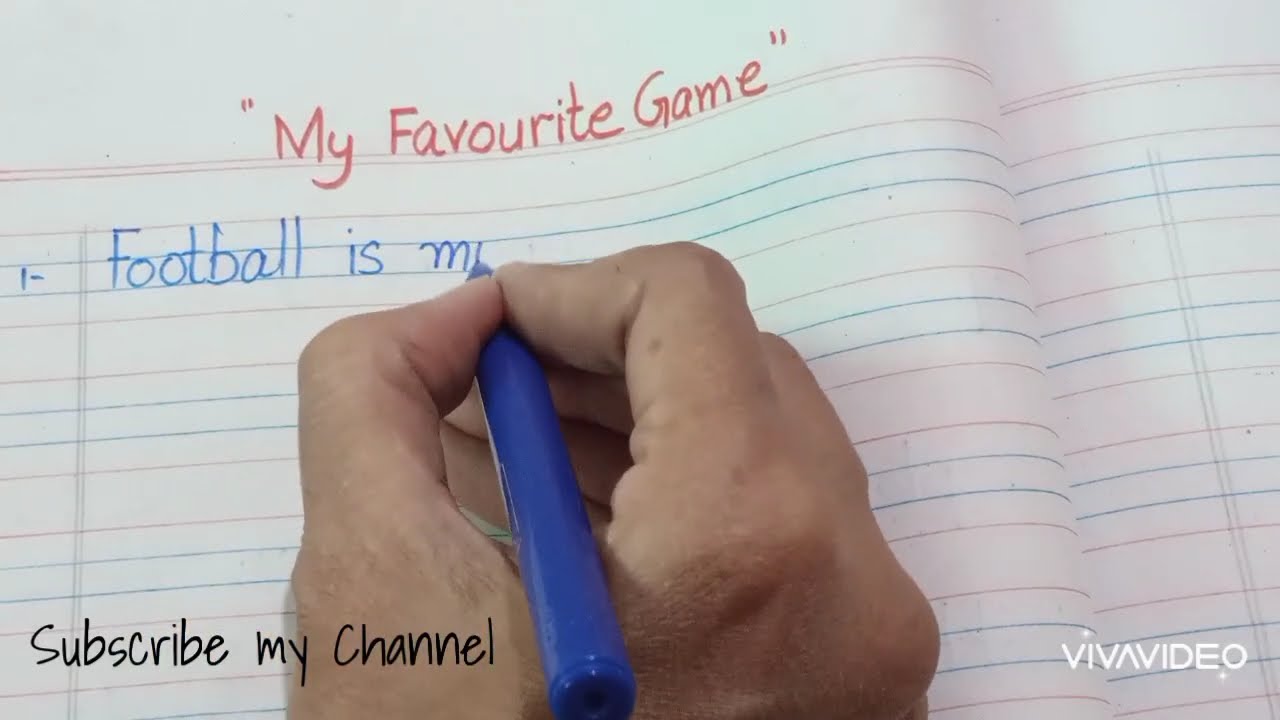 "My Favourite Game"
1- Football is my
Subscribe my Channel
VIVAVIDEO